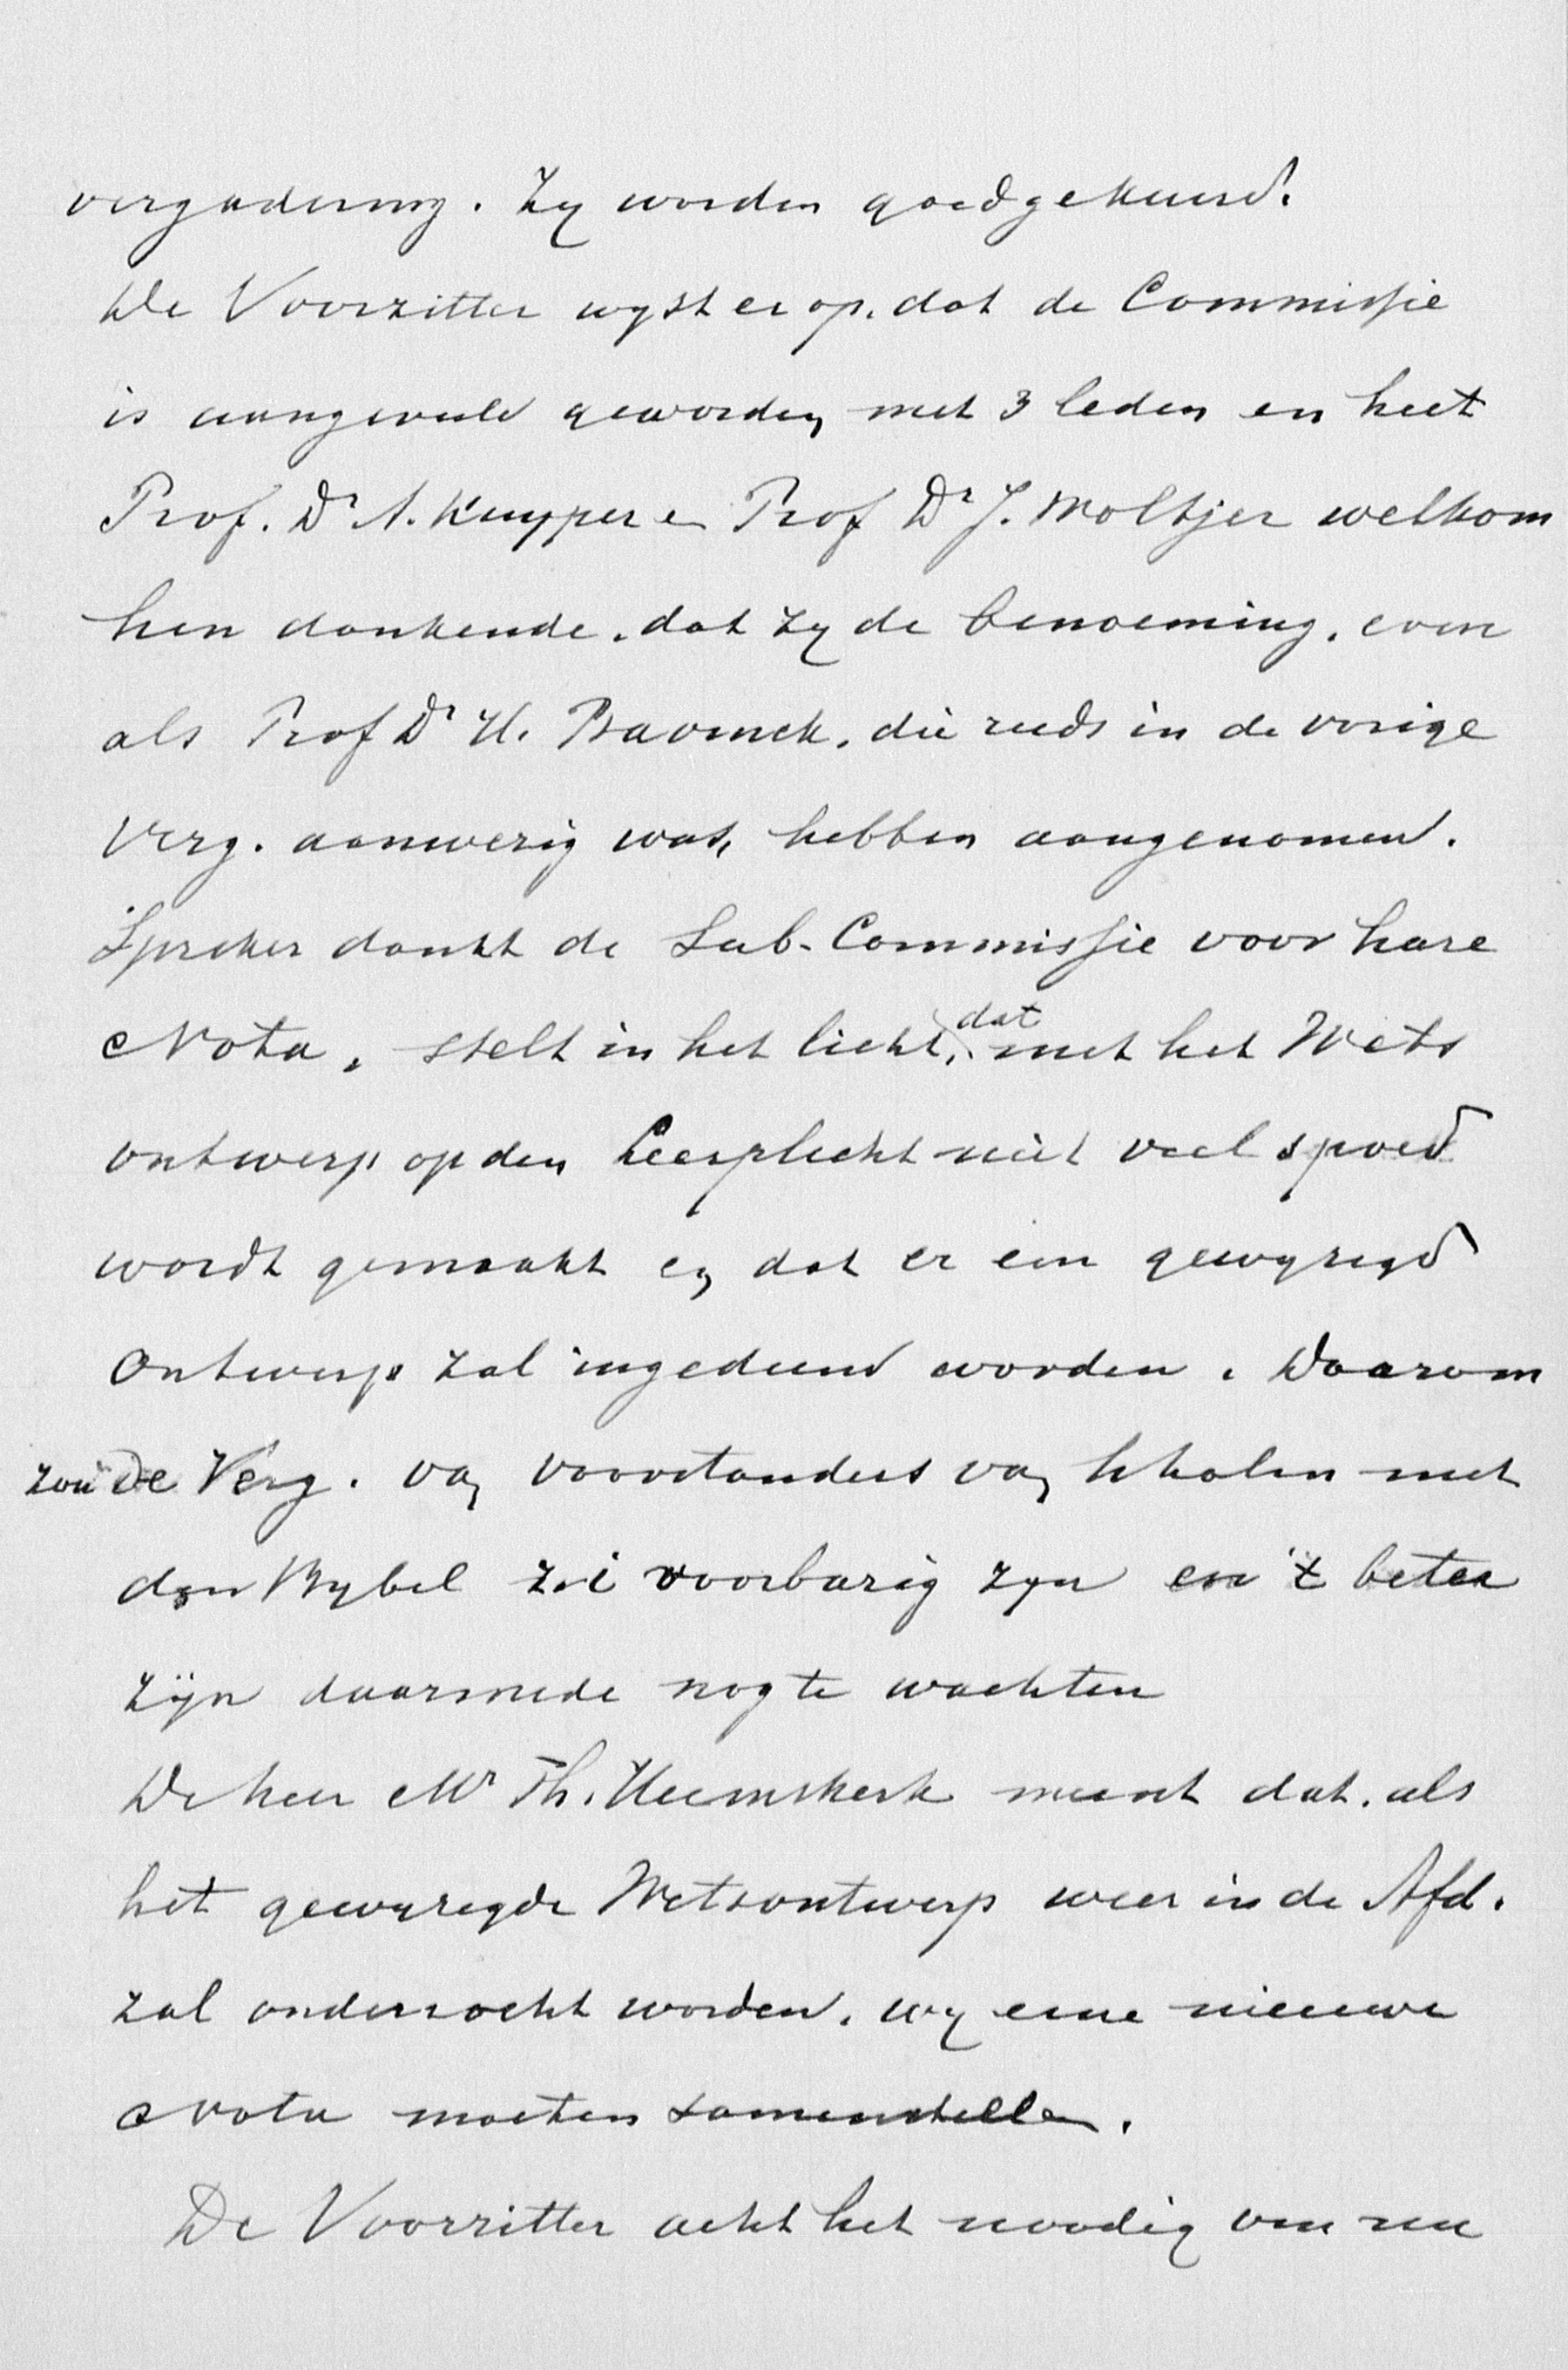 vergadering. Zy worden goedgekeurd.
De Voorzitter wyst er op, dat de Commissie
is aangevuld geworden met 3 leden en heet
Prof. Dr A. Kuyper en Prof Dr J. Woltjer welkom
hen dankende, dat zy de benoeming, even
als Prof Dr H. Bavinck, die reeds in de vorige
Verg. aanwezig was, hebben aangenomen.
Spreker dankt de Sub-Commissie voor hare
Nota, stelt in het licht, dat met het Wets
ontwerp op den Leerplicht niet veel spoed
wordt gemaakt en dat er een gewyzigd
Ontwerp zal ingediend worden. Daarom
zou de Verg. van voorstanders van Scholen met
den Bybel voorbarig zyn en 't beter
zijn daarmede nog te wachten
De heer Mr Th. Heemskerk meent dat, als
het gewyzigde Wetsontwerp weer in de Afd.
zal onderzocht worden, wy eene nieuwe
Nota moeten samenstellen.
De Voorzitter acht het noodig om nu